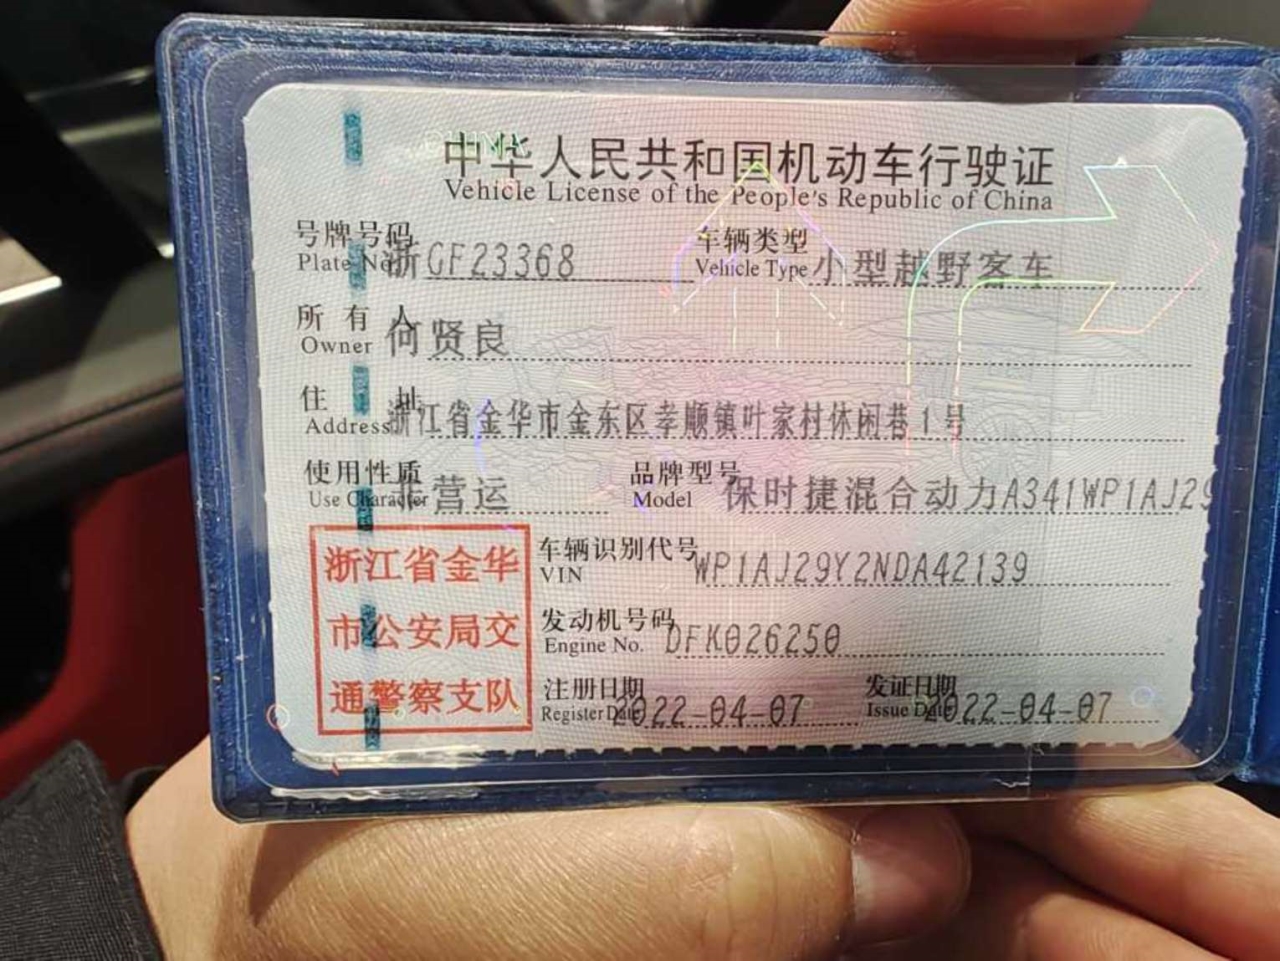 中华人民共和国机动车行驶证
Vehicle License of the People's Republic of China
号牌号码 浙GF23368 车辆类型 小型越野客车
Plate No. Vehicle Type
所有人 何贤良
Owner
住址 浙江省金华市金东区孝顺镇叶家村休闲巷1号
Address
使用性质 非营运 品牌型号 保时捷混合动力A341WP1AJ29
Use Character Model
浙江省金华
市公安局交
通警察支队
车辆识别代号 WP1AJ29Y2NDA42139
VIN
发动机号码 DFK026250
Engine No.
注册日期 2022-04-07 发证日期 2022-04-07
Register Date Issue Date